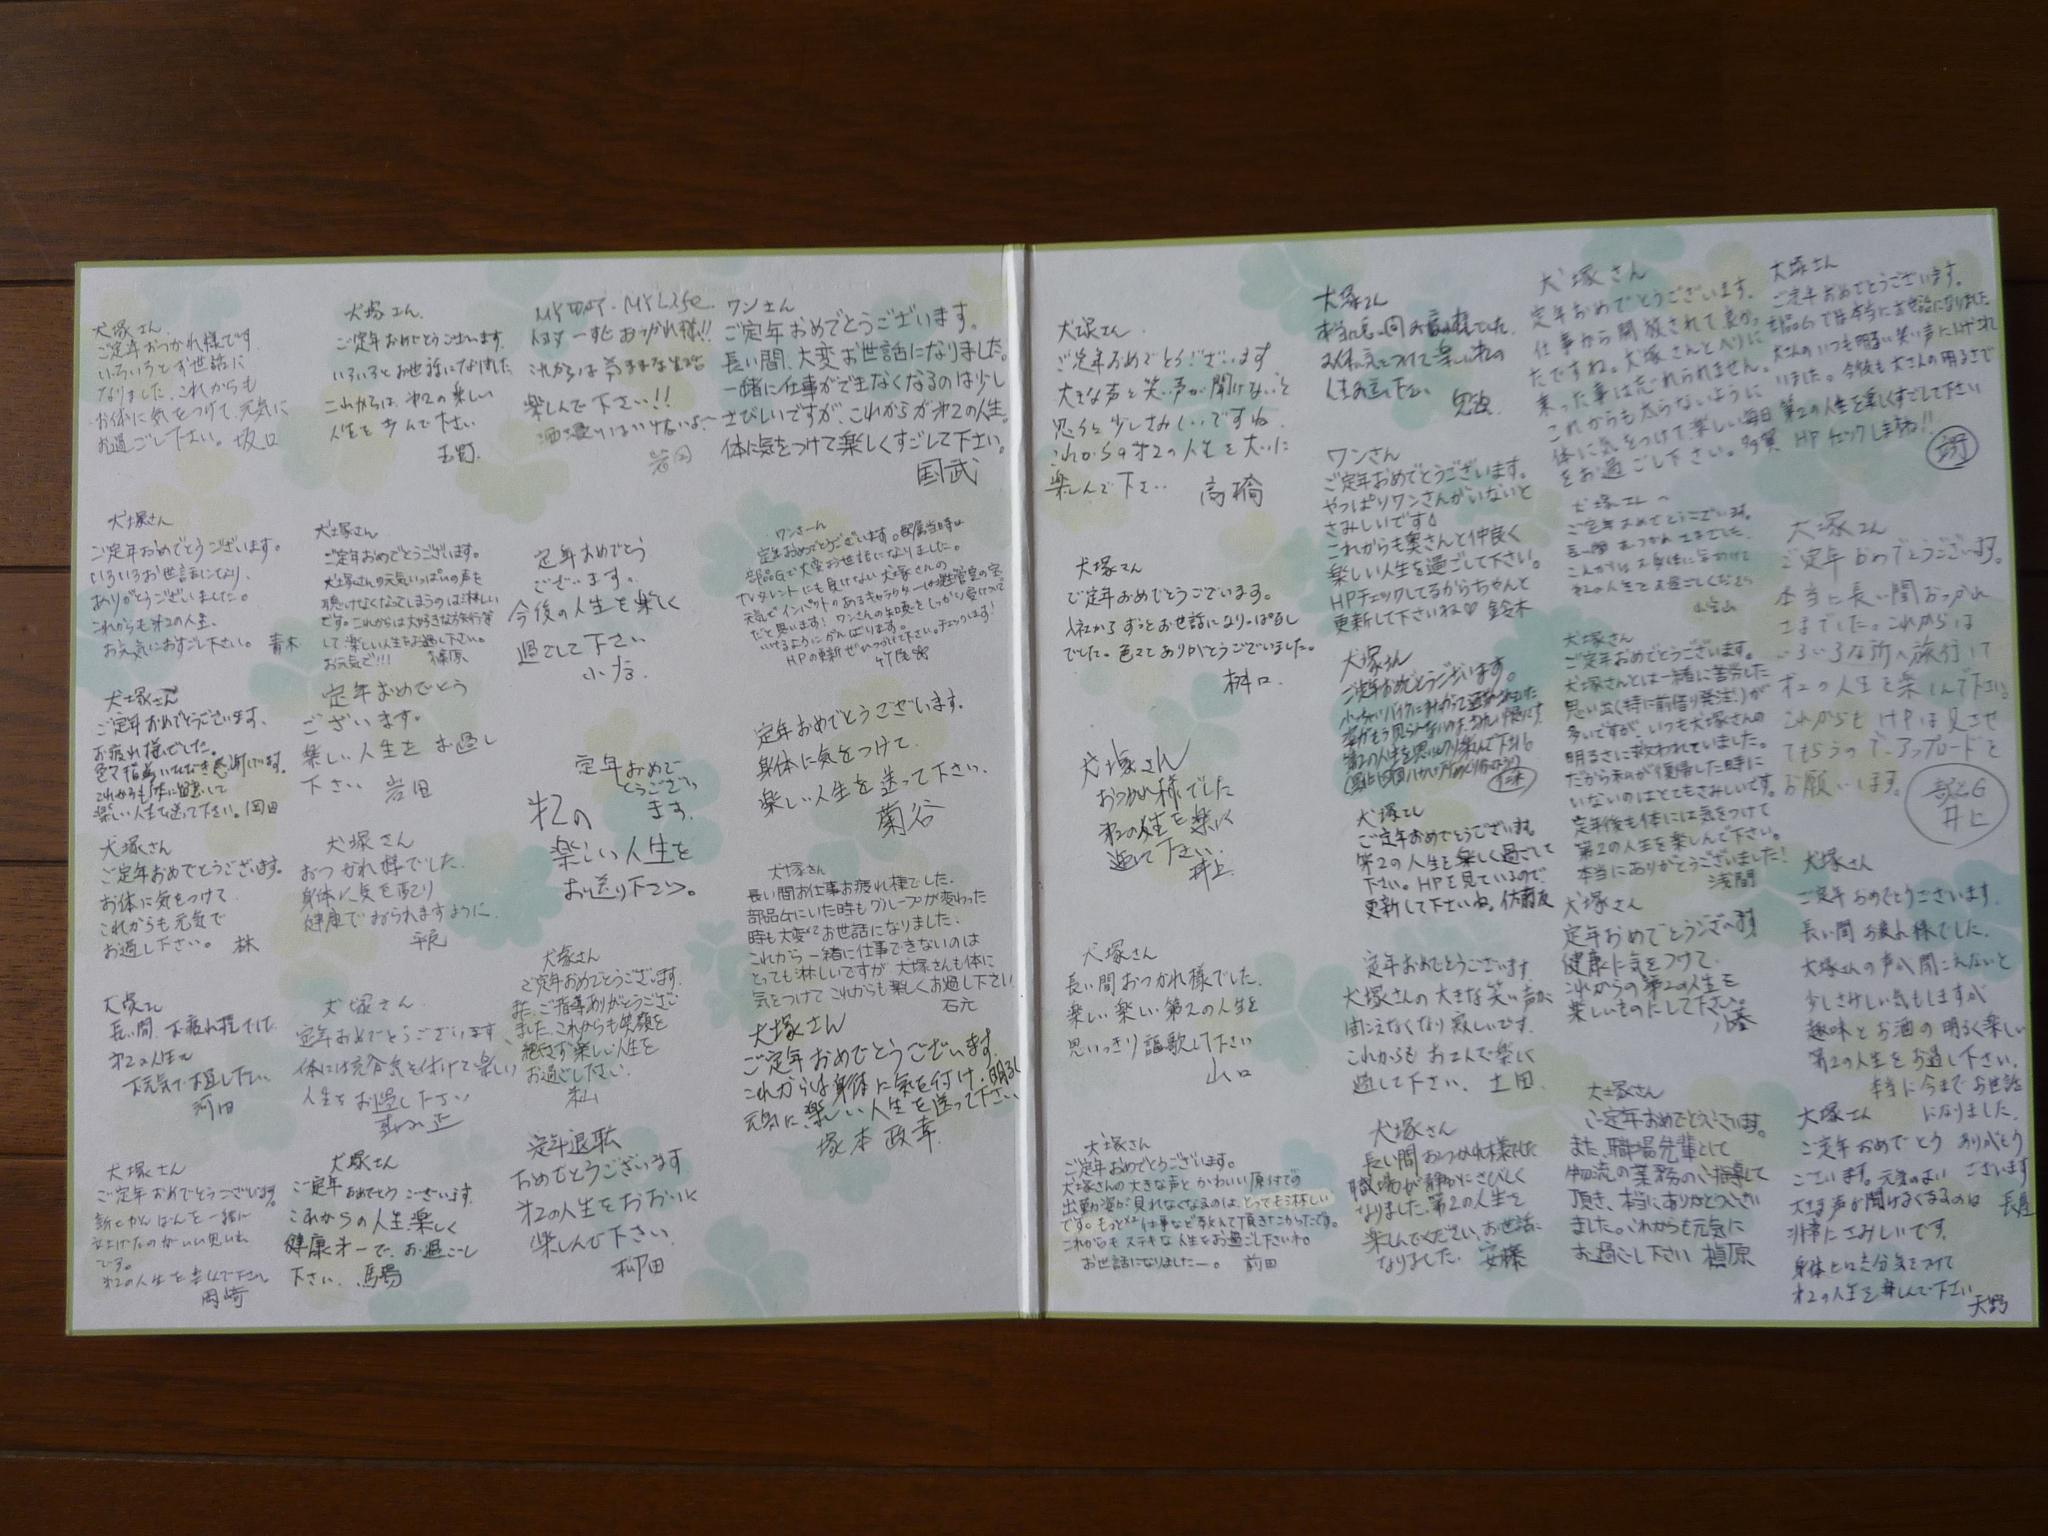 犬塚さん
ご定年おつかれ様です
いろいろとお世話に
なりました。これからも
お体に気をつけて、元気に
お過ごし下さい。坂口
犬塚さん
ご定年おめでとうございます。
いろいろお世話になり、
ありがとうございました。
これからも才2の人生、
お元気におすごし下さい。 青木
犬塚さん
ご定年おめでとうございます、
お疲れ様でした。
楽しい人生を送って下さい。岡田
犬塚さん
ご定年おめでとうございます。
お体に気をつけて
これからも元気で
お過し下さい。 林
犬塚さん
長い間、お疲れ様でした
才2の人生を
お元気でお過し下さい
河田
犬塚さん
ご定年おめでとうございます。
です。
岡崎
犬塚さん
ご定年おめでとうございます。
いろいろとお世話になりました
これからは、才2の楽しい
人生を歩んで下さい
犬塚さん
ご定年おめでとうございます。
犬塚さんの元気いっぱいの声も
聴けなくなってしまうのは淋しい
です。これからは大好きな旅行等
して、楽しい人生をお過し下さい。
お元気で!!! 篠原
定年おめでとう
ございます。
楽しい人生をお過し
下さい 岩田
犬塚さん
おつかれ様でした
身体に気を配り
健康でおられますように
平尾
犬塚さん
定年おめでとうございます、
体には充分気を付けて楽しい
人生をお過し下さい
犬塚さん
ご定年おめでとうございます。
これからの人生、楽しく
健康才一で、お過ごし
下さい 馬場
MY WAY・MY LIFE
おつかれ様!!
楽しんで下さい!!
定年おめでとう
ございます。
今後の人生を楽しく
過ごして下さい
定年おめで
とうござい
ます。
才2の
楽しい人生を
お送り下さい。
犬塚さん
ご定年おめでとうございます。
また、ご指導ありがとうござい
ました。これからも笑顔を
絶やさず楽しい人生を
お過ごし下さい。
定年退職
おめでとうございます
才2の人生をおおいに
楽しんで下さい。
柳田
ワンさん
ご定年おめでとうございます。
長い間、大変お世話になりました。
一緒に仕事ができなくなるのは少し
さびしいですが、これからが才2の人生。
体に気をつけて楽しくすごして下さい。
国武
ワンさーん
定年おめでとうございます。配属当時は
部品Gで大変お世話になりました。
TVタレントにも負けない犬塚さんの
元気でインパクトのあるキャラクターは
だと思います! ワンさんの知恵をしっかり受けついで
いけるようにがんばります。
HPの更新ぜひつづけて下さい。チェックします!
定年おめでとうございます。
身体に気をつけて、
楽しい人生を送って下さい。
菊谷
犬塚さん
長い間お仕事お疲れ様でした。
部品Gにいた時もグループが変わった
時も大変お世話になりました。
これから一緒に仕事できないのは
とっても淋しいですが、犬塚さんも体に
気をつけてこれからも楽しくお過し下さい
石元
犬塚さん
ご定年おめでとうございます。
これからは身体に気を付け、明るく
元気に、楽しい人生を送って下さい
塚本政幸
犬塚さん
ご定年おめでとうございます
大きな声と笑い声が聞けないと
思うと少しさみしいですね。
これからの才2の人生を大いに
楽しんで下さい 高橋
犬塚さん
ご定年おめでとうございます。
入社からずっとお世話になりっぱなし
でした。色々とありがとうございました。
桝口
犬塚さん
おつかれ様でした
才2の人生を楽しく
過して下さい。
井上
犬塚さん
長い間おつかれ様でした。
楽しい楽しい第2の人生を
思いっきり謳歌して下さい
山口
犬塚さん
ご定年おめでとうございます。
犬塚さんの大きな声とかわいい原付での
出勤姿が見れなくなるのは、とっても淋しい
です。もっと仕事など教えて頂きたかったです。
これからもステキな人生をお過ごし下さいね。
お世話になりましたー。 前田
犬塚さん
人生お送り下さい
ワンさん
ご定年おめでとうございます。
やっぱりワンさんがいないと
さみしいです
これからも奥さんと仲良く
楽しい人生を過ごして下さい。
HPチェックしてるからちゃんと
更新して下さいね♡ 鈴木
犬塚さん
ご定年おめでとうございます。
犬塚さん
ご定年おめでとうございます。
第2の人生を楽しく過ごして
下さい。HPを見ているので
更新して下さいね。佐藤友
定年おめでとうございます
犬塚さんの大きな笑い声が
聞こえなくなり寂しいです。
これからもお元気で楽しく
過して下さい。土田
犬塚さん
長い間おつかれ様でした
職場が静かにさびしく
なりました。第2の人生を
楽しんでください。お世話に
なりました。安藤
犬塚さん
定年おめでとうございます。
仕事から開放されて良かっ
たですね。犬塚さんとペリに
乗った事はわすれられません。
これからも太らないように
体に気をつけて、楽しい毎日
をお過ごし下さい。多賀
犬塚さん
ご定年おめでとうございます。
小宮山
犬塚さん
ご定年おめでとうございます。
犬塚さんとは一緒に苦労した
思い出(特に前借り発注!)が
多いですが、いつも犬塚さんの
明るさに救われていました。
だから私が復帰した時に
いないのはとてもさみしいです。
定年後も体には気をつけて
第2の人生を楽しんで下さい。
本当にありがとうございました!
浅間
犬塚さん
定年おめでとうございます
健康に気をつけて、
これからの第2の人生を
楽しいものにして下さい。
犬塚さん
ご定年おめでとうございます。
また、職場先輩として
物流の業務のご指導して
頂き、本当にありがとうござい
ました。これからも元気に
お過ごし下さい 槙原
犬塚さん
ご定年おめでとうございます。
部品Gでは本当にお世話になりました
いました。今後も犬さんの明るさで
第2の人生を楽しくすごして下さい
HPチェックしますね!!
犬塚さん
ご定年おめでとうございます。
本当に長い間おつかれ
さまでした。これからは
いろいろな所へ旅行して
才2の人生を楽しんで下さい。
これからもHPは見させ
てもらうので、アップロードを
お願いします。
部品G
井上
犬塚さん
ご定年おめでとうございます。
長い間お疲れ様でした。
犬塚さんの声が聞こえないと
少しさみしい気もしますが
趣味とお酒の明るく楽しい
第2の人生をお過し下さい。
本当に今までお世話
になりました。
ありがとう
ございます
長尾
犬塚さん
ご定年おめでとう
ございます。元気のよい
大きな声が聞けなくなるのは
非常にさみしいです。
身体には充分気をつけて
才2の人生を楽しんで下さい
天野